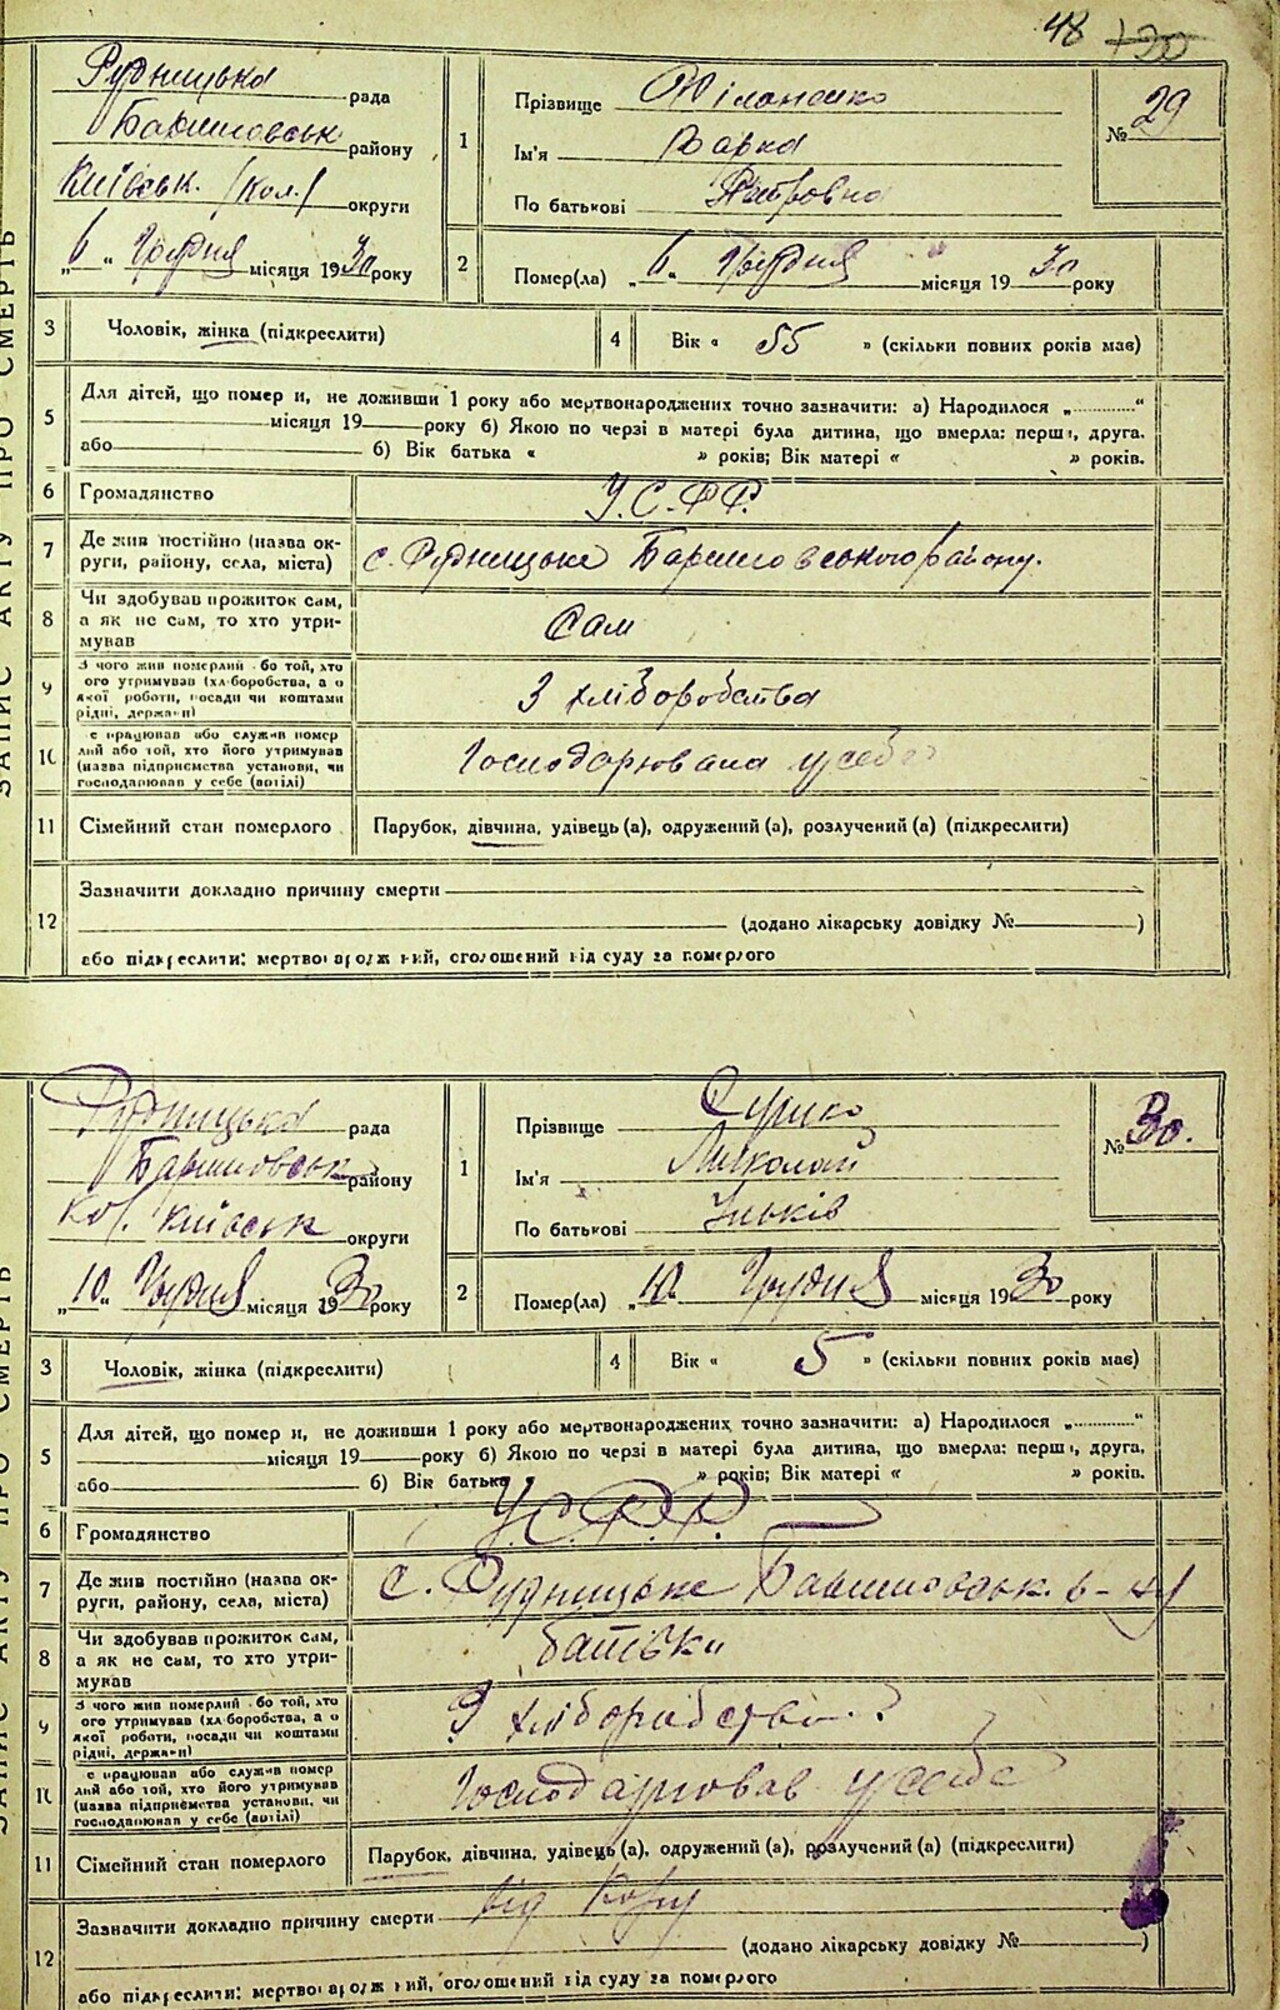 48 130
Рудницька рада
Баришовськ району
Київськ. /кол./ округи
„6“ Грудня місяця 1930 року
1
Прізвище
Ім'я Варка
По батькові Петровна
№ 29
2
Помер(ла) „6“ Грудня місяця 1930 року
3 Чоловік, жінка (підкреслити)
4 Вік « 55 » (скільки повних років має)
5 Для дітей, що помер и, не доживши 1 року або мертвонароджених точно зазначити: а) Народилося „............“
місяця 19 року б) Якою по черзі в матері була дитина, що вмерла: перша, друга.
або б) Вік батька « » років; Вік матері « » років.
6 Громадянство У.С.Р.Р.
7 Де жив постійно (назва ок-
руги, району, села, міста) с. Рудницьке Баришовського району.
8 Чи здобував прожиток сам,
а як не сам, то хто утри-
мував Сам
9 З чого жив померлий бо той, хто
ого утримував (хл боробства, а о
якої роботи, посади чи коштами
рідні, держави) З хліборобства
10 е працював або служив помер
лий або той, хто його утримував
(назва підприємства установи, чи
господарював у себе (вдома) Господарювала у себе
11 Сімейний стан померлого Парубок, дівчина, удівець (а), одружений (а), розлучений (а) (підкреслити)
12 Зазначити докладно причину смерти
(додано лікарську довідку № )
або підкреслити: мертвонароджений, оголошений від суду за померлого
ЗАПИС АКТУ ПРО СМЕРТЬ
Рудницька рада
Баришовськ району
кол. Київськ округи
„10“ Грудня місяця 1930 року
1
Прізвище
Ім'я Миколай
По батькові Ільків
№ 30.
2
Помер(ла) „10“ Грудня місяця 1930 року
3 Чоловік, жінка (підкреслити)
4 Вік « 5 » (скільки повних років має)
5 Для дітей, що помер и, не доживши 1 року або мертвонароджених точно зазначити: а) Народилося „............“
місяця 19 року б) Якою по черзі в матері була дитина, що вмерла: перша, друга.
або б) Вік батька » років; Вік матері « » років.
6 Громадянство У.С.Р.Р.
7 Де жив постійно (назва ок-
руги, району, села, міста) С. Рудницьке Баришовськ. р-ну
8 Чи здобував прожиток сам,
а як не сам, то хто утри-
мував батьки
9 З чого жив померлий бо той, хто
ого утримував (хл боробства, а о
якої роботи, посади чи коштами
рідні, держави) З хліборобства
10 е працював або служив помер
лий або той, хто його утримував
(назва підприємства установи, чи
господарював у себе (вдома) Господарював у себе
11 Сімейний стан померлого Парубок, дівчина, удівець (а), одружений (а), розлучений (а) (підкреслити)
12 Зазначити докладно причину смерти від Кору
(додано лікарську довідку № )
або підкреслити: мертвонароджений, оголошений від суду за померлого